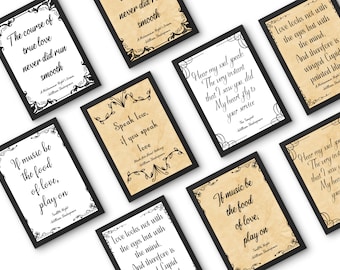 The course of
true love
never did run
smooth
A Midsummer Night's Dream
William Shakespeare
could ever hear
The course of
true love
never did run
smooth
Hear my soul speak.
The very instant
that I saw you did
My heart fly to
your service
The Tempest
William Shakespeare
Love looks not with
the eyes but with
the mind
And therefore is
winged Cupid
painted blind
If music be
the food
of love,
play on
Twelfth Night
William Shakespeare
Speak low,
if you speak
love
Much Ado About Nothing
William Shakespeare
Hear my soul speak.
The very instant
that I saw you did
My heart fly to
Love looks not with
the eyes but with
the mind.
And therefore is
winged Cupid
If music be
the food
of love,
play on
Twelfth Night
William Shakespeare